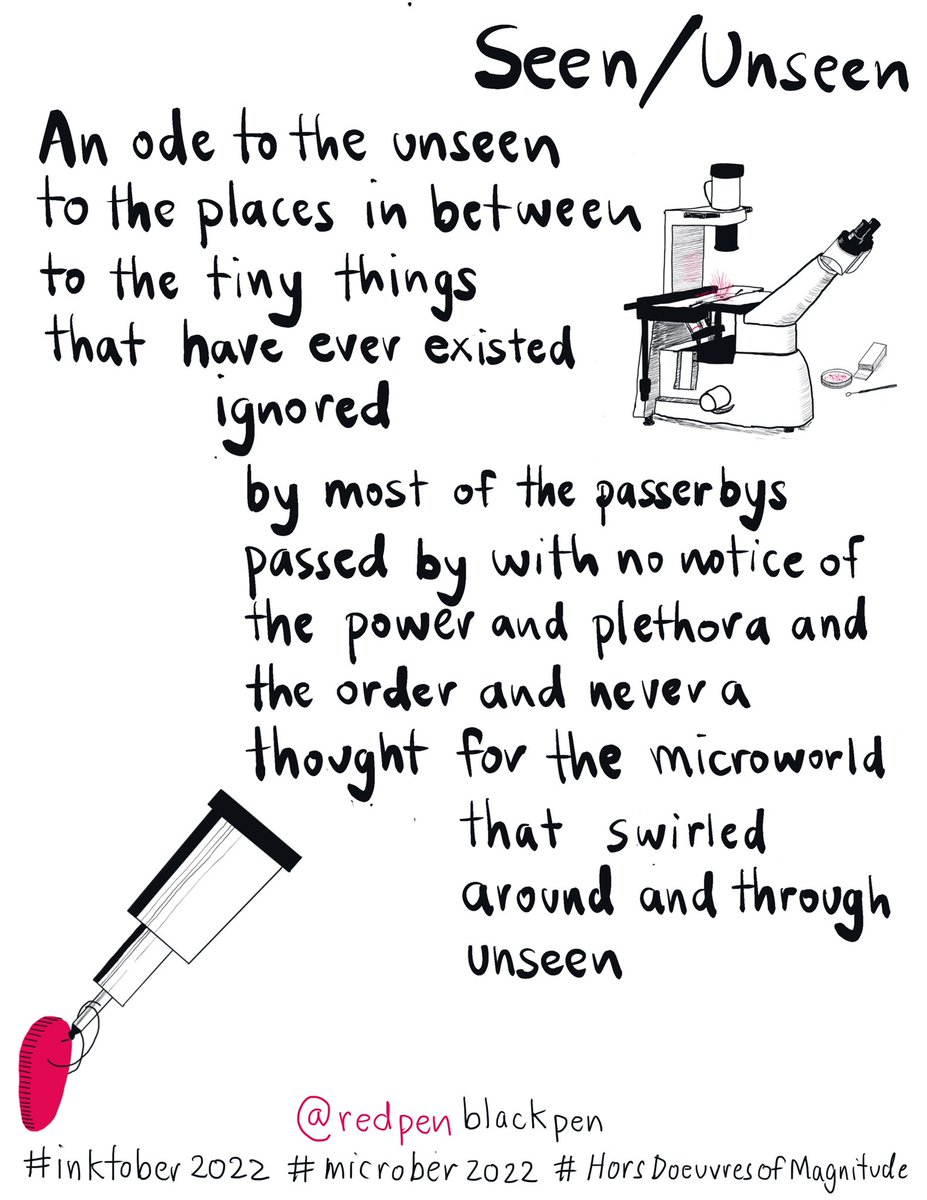 Seen/Unseen
An ode to the unseen
to the places in between
to the tiny things
that have ever existed
ignored
by most of the passerbys
passed by with no notice of
the power and plethora and
the order and never a
thought for the microworld
that swirled
around and through
unseen
@redpenblackpen
#inktober2022 #microber2022 #HorsDoeuvresofMagnitude